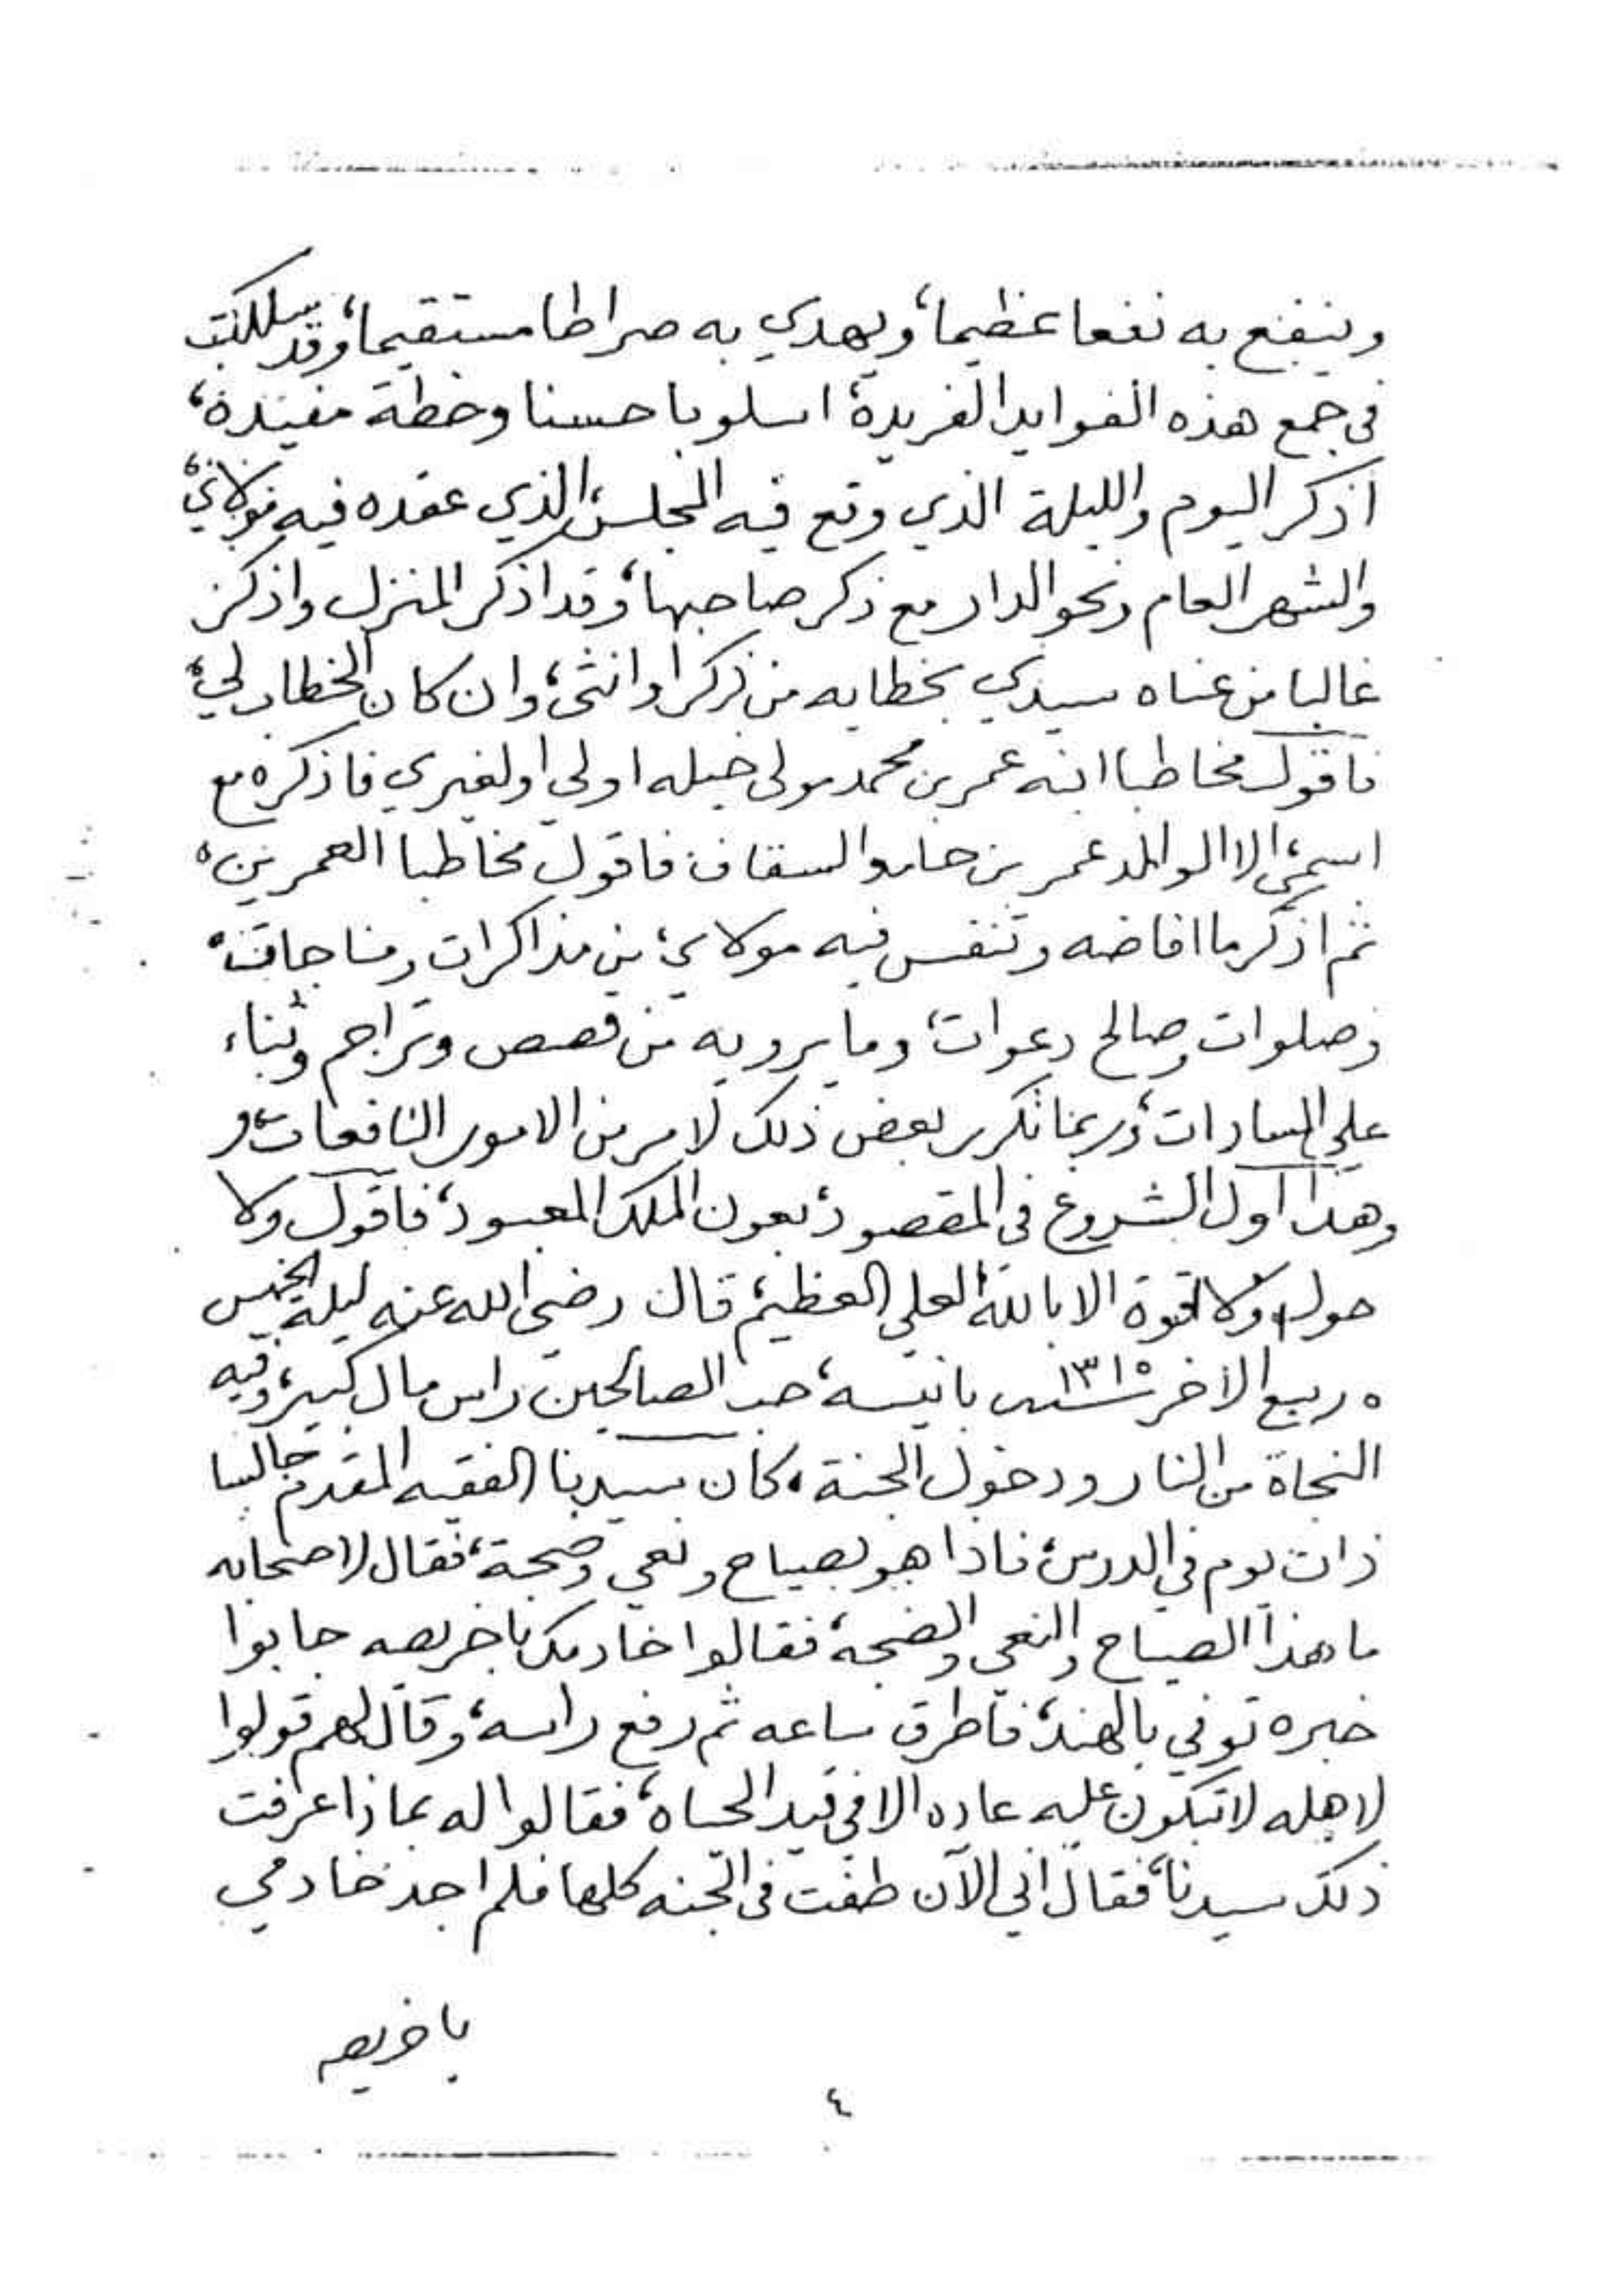 وينفع به نفعا عظيما، ويهدي به صراطا مستقيما، وقد سلكت
في جمع هذه الفوايد الفريدة، اسلوبا حسنا وخطة مفيدة،
أذكر اليوم والليلة الذي وقع فيه المجلس، الذي عقده فيه مولاي،
والشهر العام ونحو الدار مع ذكر صاحبها، وقد اذكر المنزل واذكر
غالبا من عناه سيدي بخطابه من ذكر او انثى، وان كان الخطاب لي،
فاقول مخاطبا ابنه عمر بن محمد مولى خيله اولي اولغيري فاذكره مع
اسمي، الا الوالد عمر بن حامد السقاف فاقول مخاطبا العمرين،
ثم اذكر ما افاضه وتنفس فيه مولاي، من مذاكرات ومناجات،
وصلوات وصالح دعوات، وما يرويه من قصص وتراجم وثناء
على السادات، وربما تكرر بعض ذلك لامر من الامور النافعات، و
وهذا اول الشروع في المقصود، بعون الملك المعبود، فاقول ولا
حول ولا قوة الا بالله العلي العظيم، قال رضي الله عنه ليلة الخميس
٥ ربيع الاخر سنة ١٣١٥ بانيسه، حب الصالحين راس مال كبير، وفيه
النجاة من النار ودخول الجنة، كان سيدنا الفقيه المقدم جالسا
ذات يوم في الدرس، فاذا هو بصياح ونعي وضجة، فقال لاصحابه
ما هذا الصياح والنعي والضجه، فقالوا خادمك باخريصه جابوا
خبره توفي بالهند، فاطرق ساعه ثم رفع راسه، وقال لهم قولوا
لاهله لا تبكون عليه عاده الا في قيد الحياه، فقالوا له بماذا عرفت
ذلك سيدنا، فقال اني الآن طفت في الجنه كلها فلم اجد خادمي
باخريصه
٤